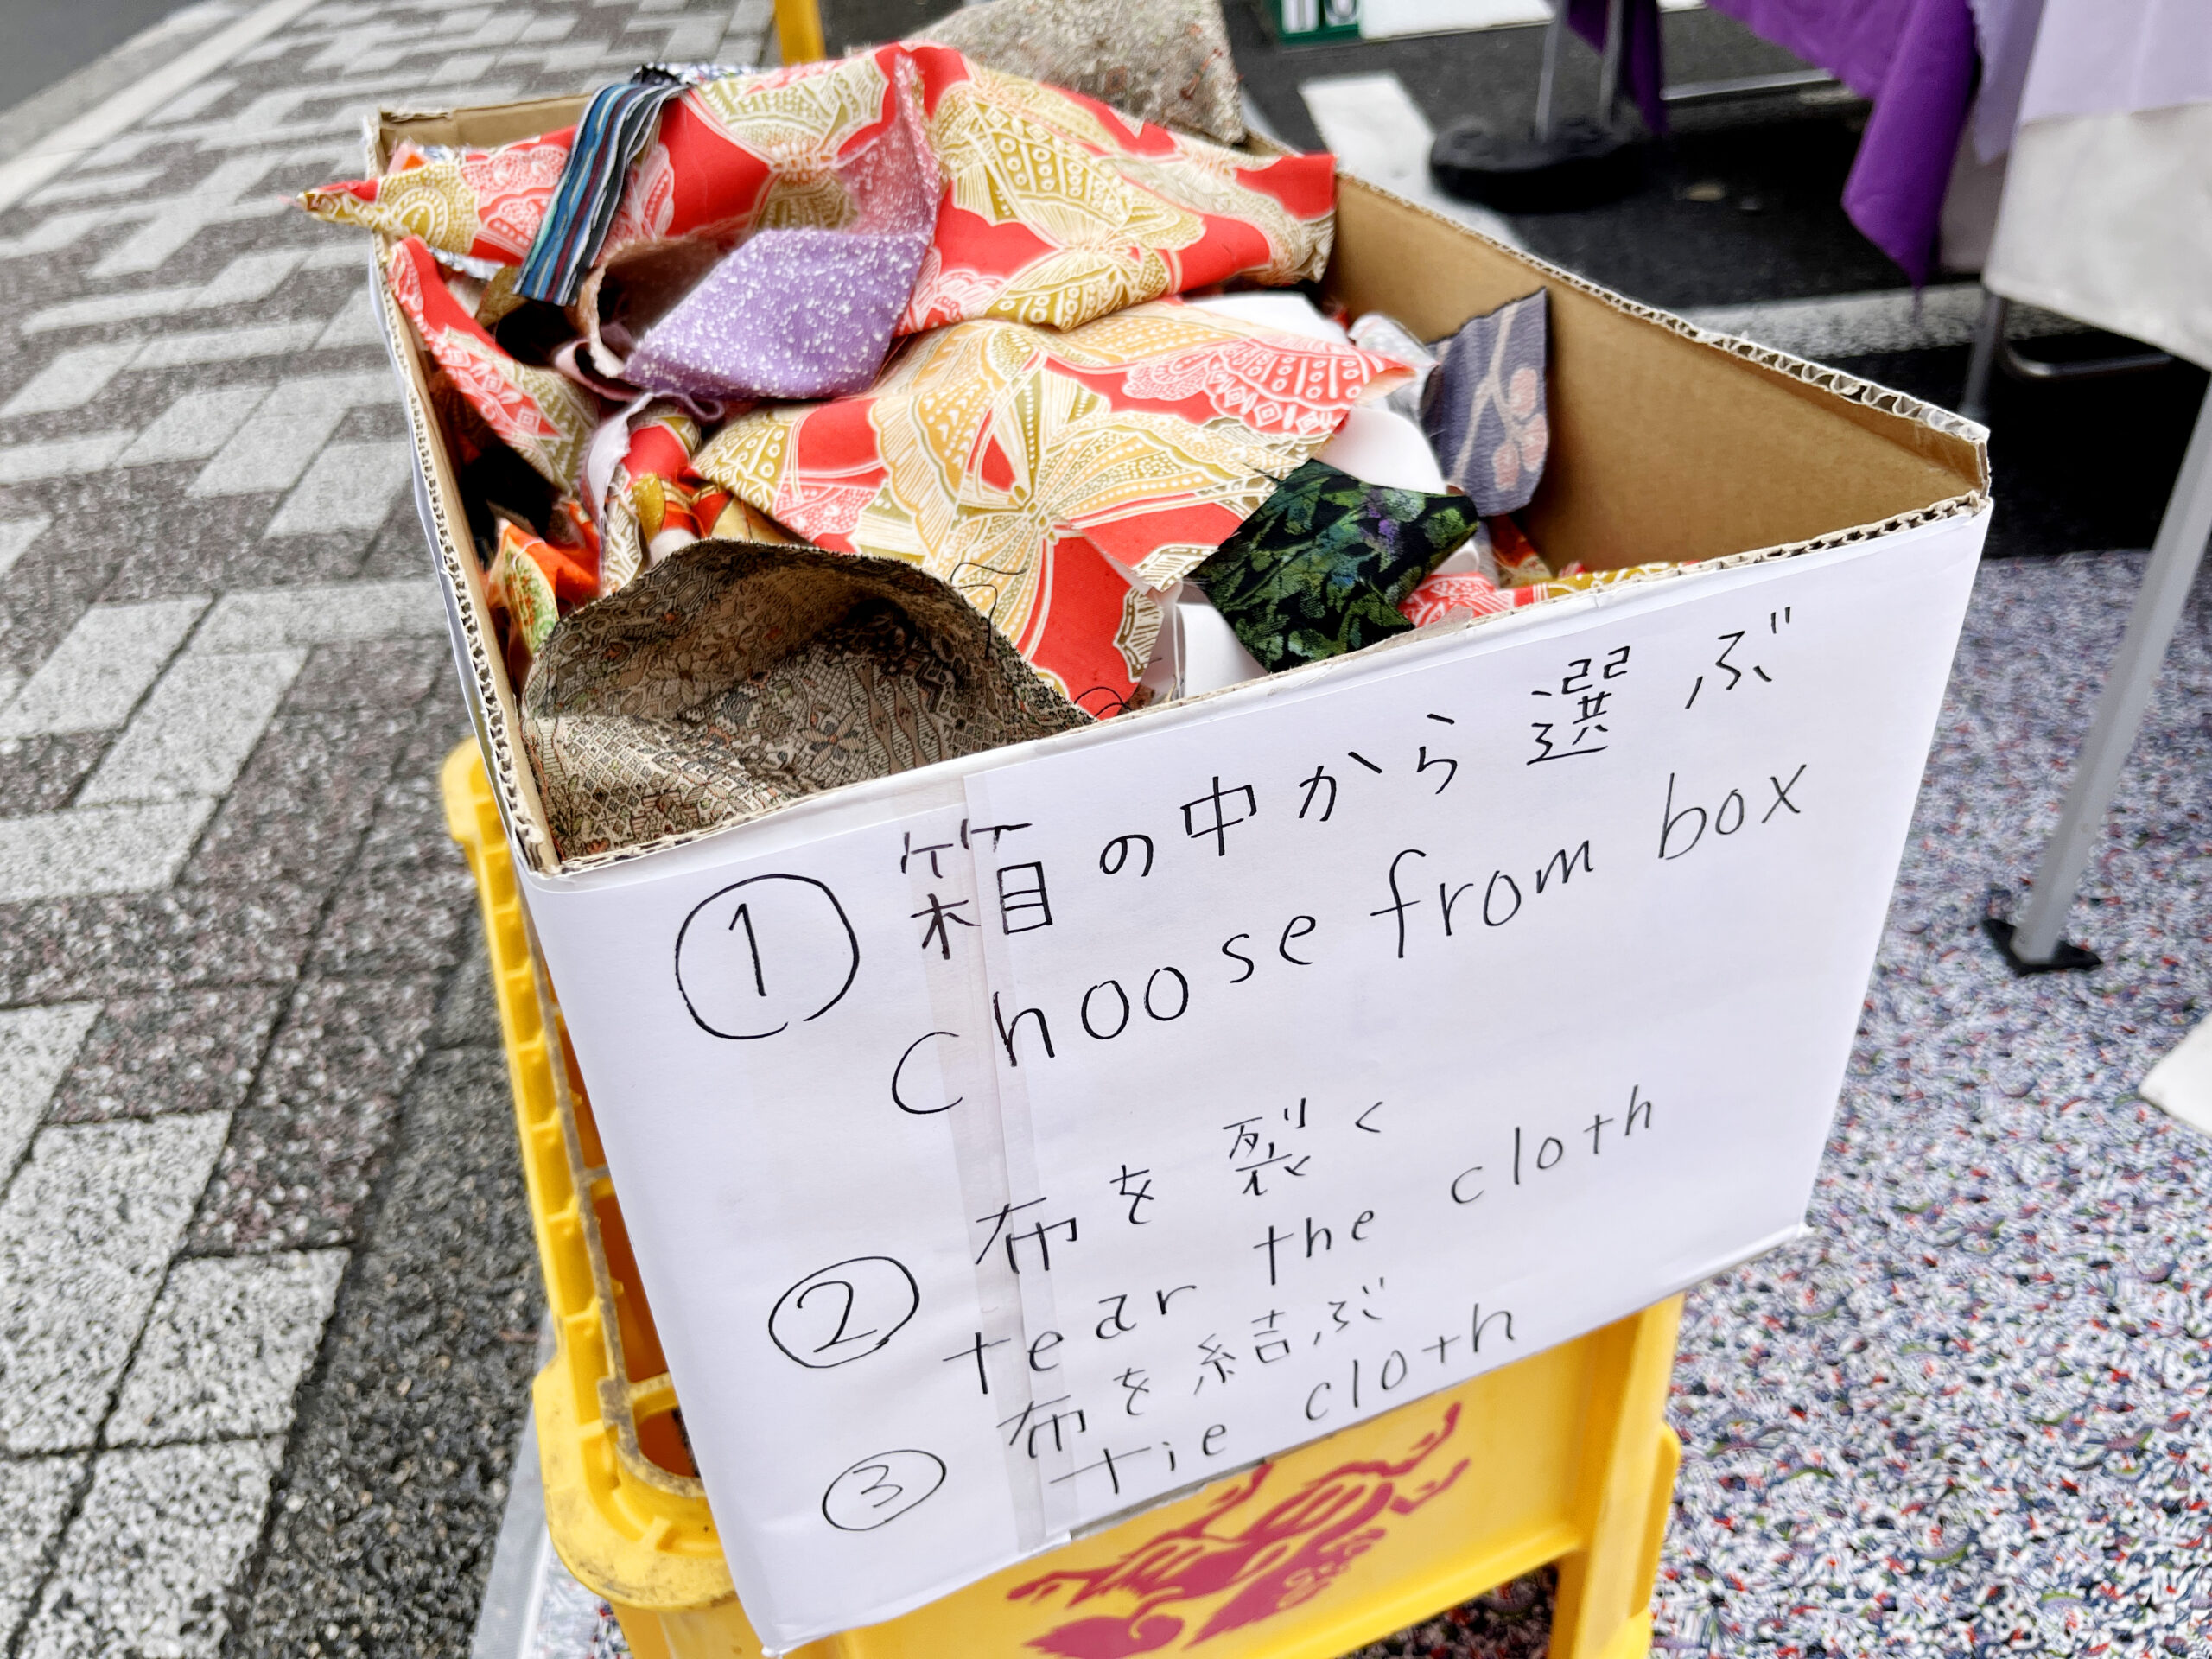 ① 箱の中から選ぶ
choose from box
② 布を裂く
tear the cloth
③ 布を結ぶ
tie cloth